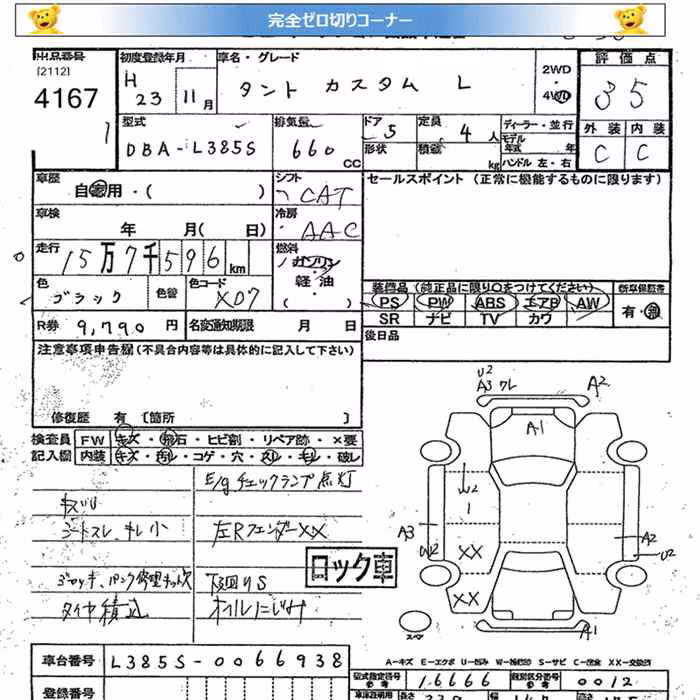 完全ゼロ切りコーナー
出品番号 初度登録年月 車名・グレード 2WD 評価点
[2112] H 23 11月 タント カスタム L 4WD 35
4167
型式 排気量 ドア 5 定員 4人 ディーラー・並行 外装 内装
DBA-L385S 660 CC 形状 積載 kg モデル年式 年 C C
ハンドル 左・右
車歴 シフト セールスポイント (正常に機能するものに限ります)
自家用・( ) CAT
車検 冷房
年 月( 日) AAC
走行 燃料
15万7千596km ガソリン
軽油
色 色替 色コード 装備品 (純正品に限り○をつけてください) 新車保証書
ブラック X07 PS PW ABS エアB AW 有・無
R券 9,790円 名変通知期限 月 日 SR ナビ TV カワ
注意事項申告欄(不具合内容等は具体的に記入して下さい) 後日品
修復歴 有 [箇所 ]
検査員 FW キズ・飛石・ヒビ割・リペア跡・×要
記入欄 内装 キズ・汚れ・コゲ・穴・スレ・モレ・破レ
E/gチェックランプ点灯
シートスレ、キレ小 左RフェンダーXX
ジャッキ、パンク修理キット欠 下回りS
タイヤ積込 オイルにじみ
ロック車
U2
A3 ワレ A2
A1
U2
1
A3 A2
W2 XX U2
XX
スペア A1
A-キズ E-エクボ U-凹み W-補修跡 S-サビ C-腐食 XX-交換済
車台番号 L385S-0066938 型式指定番号 16666 類別区分番号 0012
登録番号